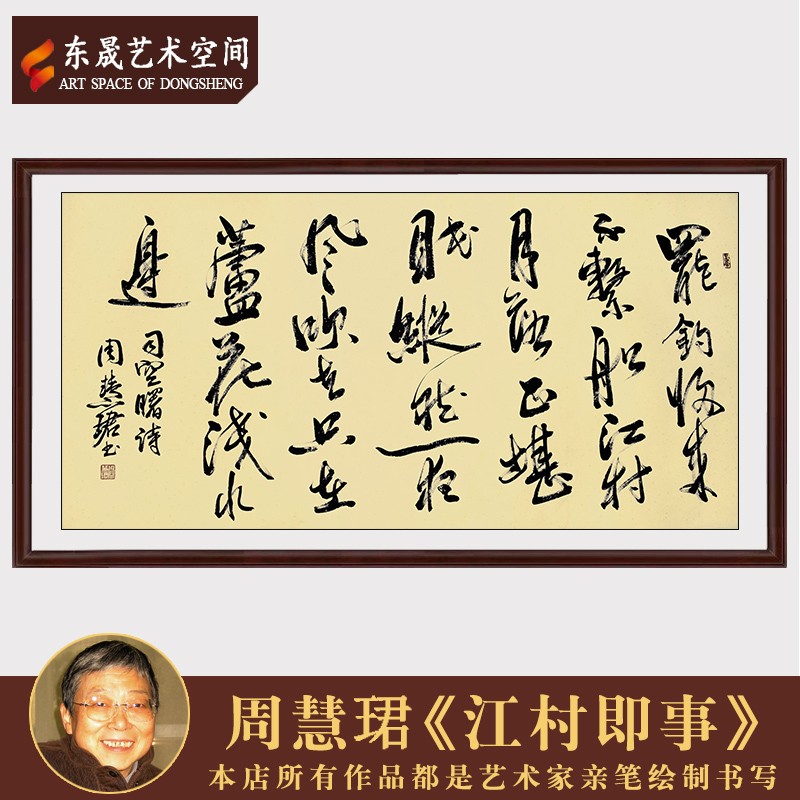 东晟艺术空间
ART SPACE OF DONGSHENG
罷釣歸来
不繫船江村
月落正堪
眠縱然一夜
風吹去只在
蘆花淺水
邊
司空曙诗
周慧珺书
周慧珺《江村即事》
本店所有作品都是艺术家亲笔绘制书写